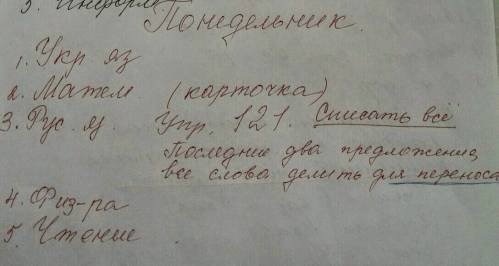 3. Информ
Понедельник.
1. Укр яз
2. Матем (карточка)
3. Рус. яз. Упр. 121. Списать всё
Последние два предложения,
все слова делить для переноса
4. Физ-ра
5. Чтение